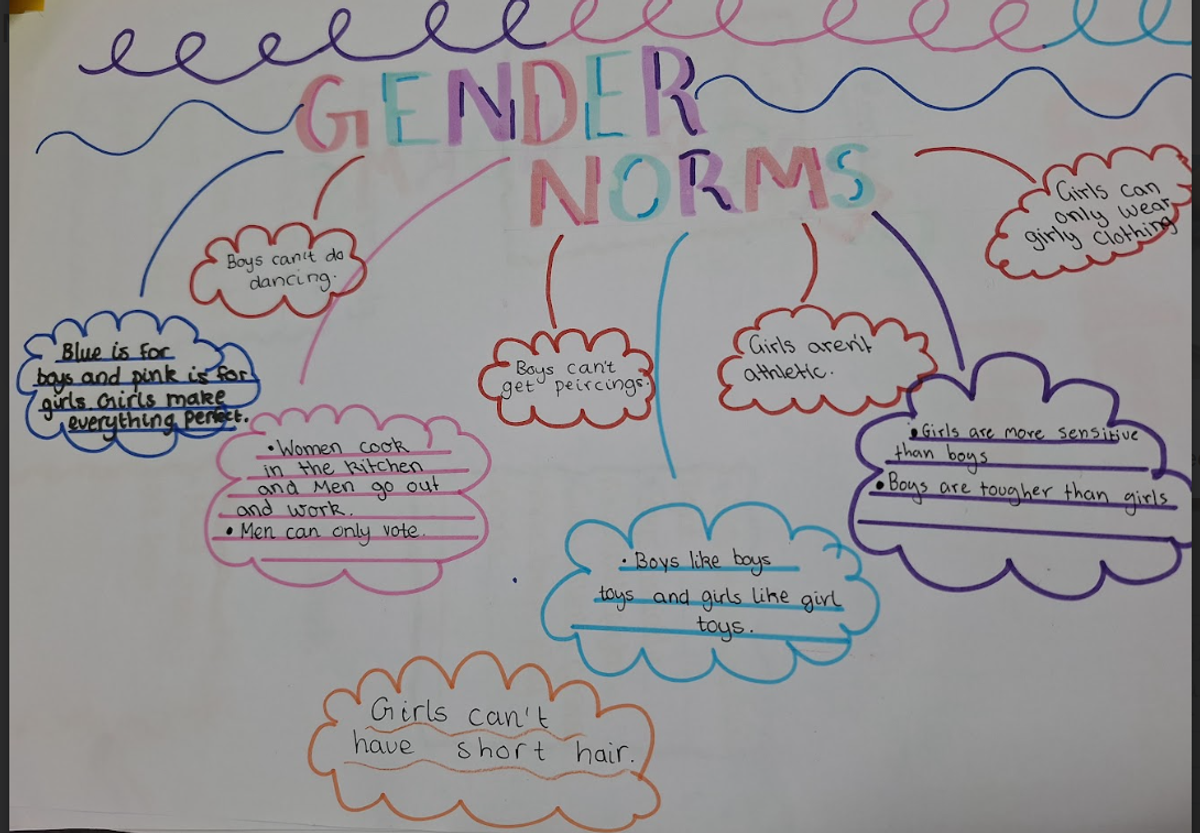 GENDER
NORMS
Boys can't do
dancing.
Girls can
only wear
girly clothing
Blue is for
boys and pink is for
girls. Girls make
everything perfect.
Boys can't
get peircings.
Girls aren't
athletic.
• Women cook
in the kitchen
and Men go out
and work.
• Men can only vote.
• Girls are more sensitive
than boys
• Boys are tougher than girls
• Boys like boys
toys and girls like girl
toys.
Girls can't
have short hair.